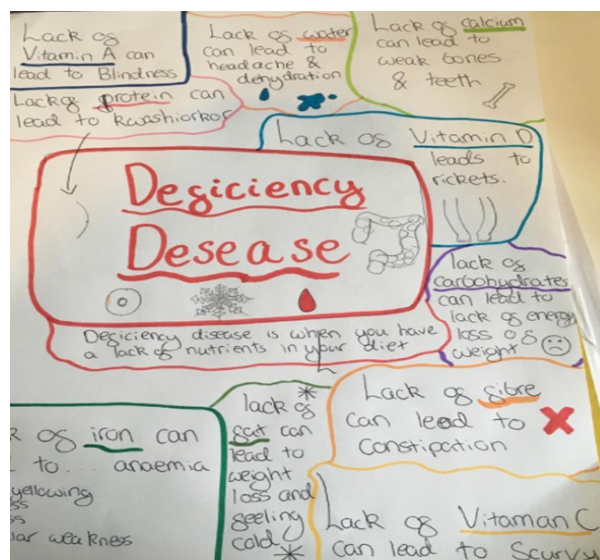 Lack of
Vitamin A can
lead to Blindness
Lack of water
can lead to
headache &
dehydration
Lack of calcium
can lead to
weak bones
& teeth
Lack of protein can
lead to kwashiorkor
Lack of Vitamin D
leads to
rickets.
Deficiency
Desease
Deficiency disease is when you have
a lack of nutrients in your diet
lack of
carbohydrates
can lead to
lack of energy
loss of
weight
Lack of fibre
can lead to
constipation
lack of
fat can
lead to
weight
loss and
feeling
cold
of iron can
to... anaemia
yellowing
weakness
Lack of Vitaman C
can lead to Scurvy